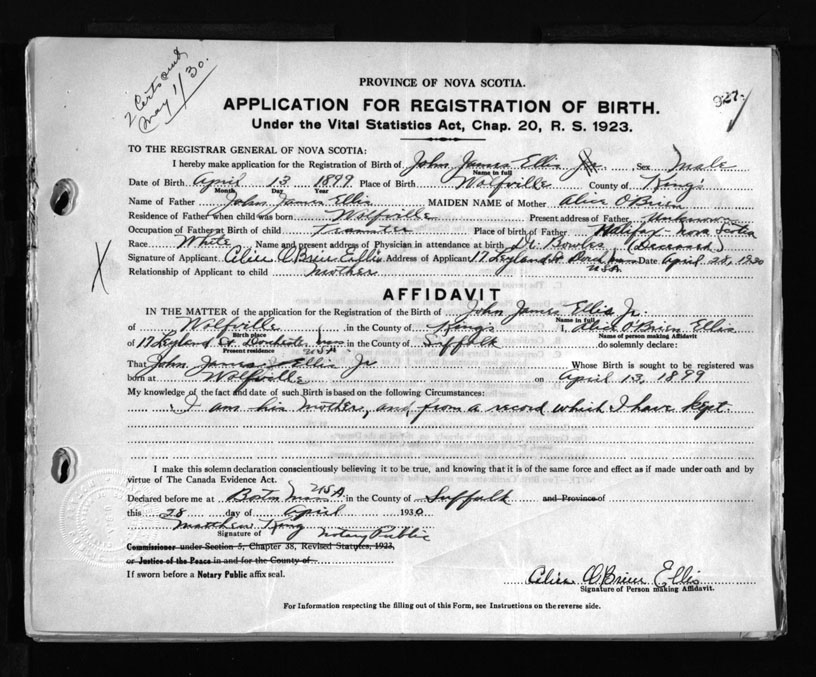 2 Certs
May 1/30.
927
PROVINCE OF NOVA SCOTIA.
APPLICATION FOR REGISTRATION OF BIRTH.
Under the Vital Statistics Act, Chap. 20, R. S. 1923.
TO THE REGISTRAR GENERAL OF NOVA SCOTIA:
I hereby make application for the Registration of Birth of John James Ellis Jr Sex Male
Name in full
Date of Birth April 13 1899 Place of Birth Wolfville County of King's
Month Day Year
Name of Father John James Ellis MAIDEN NAME of Mother Alice O'Brien
Residence of Father when child was born Wolfville Present address of Father Unknown
Occupation of Father at Birth of child Place of birth of Father Halifax - Nova Scotia
Race White Name and present address of Physician in attendance at birth Dr. Bowles (Deceased)
Signature of Applicant Alice O'Brien Ellis Address of Applicant 17 Leyland St Dorch Mass Date April 28, 1930
USA
Relationship of Applicant to child mother
AFFIDAVIT
IN THE MATTER of the application for the Registration of the Birth of John James Ellis Jr.
Name in full
of Wolfville in the County of King's I, Alice O'Brien Ellis
Birth place Name of person making Affidavit
of 17 Leyland St Dorchester Mass in the County of Suffolk do solemnly declare:
Present residence USA
That John James Ellis Jr Whose Birth is sought to be registered was
born at Wolfville on April 13, 1899
My knowledge of the fact and date of such Birth is based on the following Circumstances:
I am his Mother, and from a record which I have kept.
I make this solemn declaration conscientiously believing it to be true, and knowing that it is of the same force and effect as if made under oath and by
virtue of The Canada Evidence Act.
Declared before me at Boston Mass USA in the County of Suffolk and Province of
this 28 day of April 1930
Matthew King
Signature of Notary Public
Commissioner under Section 5, Chapter 38, Revised Statutes, 1923,
or Justice of the Peace in and for the County of
If sworn before a Notary Public affix seal.
Alice O'Brien Ellis
Signature of Person making Affidavit.
For Information respecting the filling out of this Form, see Instructions on the reverse side.